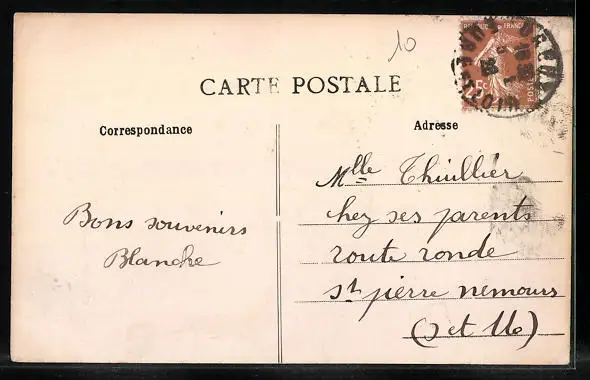 10
CARTE POSTALE
Correspondance
Adresse
Bons souvenirs
Blanche
Mlle Thuillier
hez ses parents
route ronde
St pierre nemours
(S et Me)
25c
POSTES